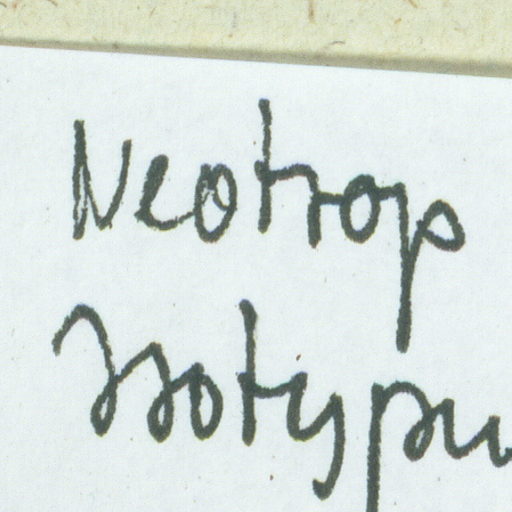 Neotrop
Isotypu